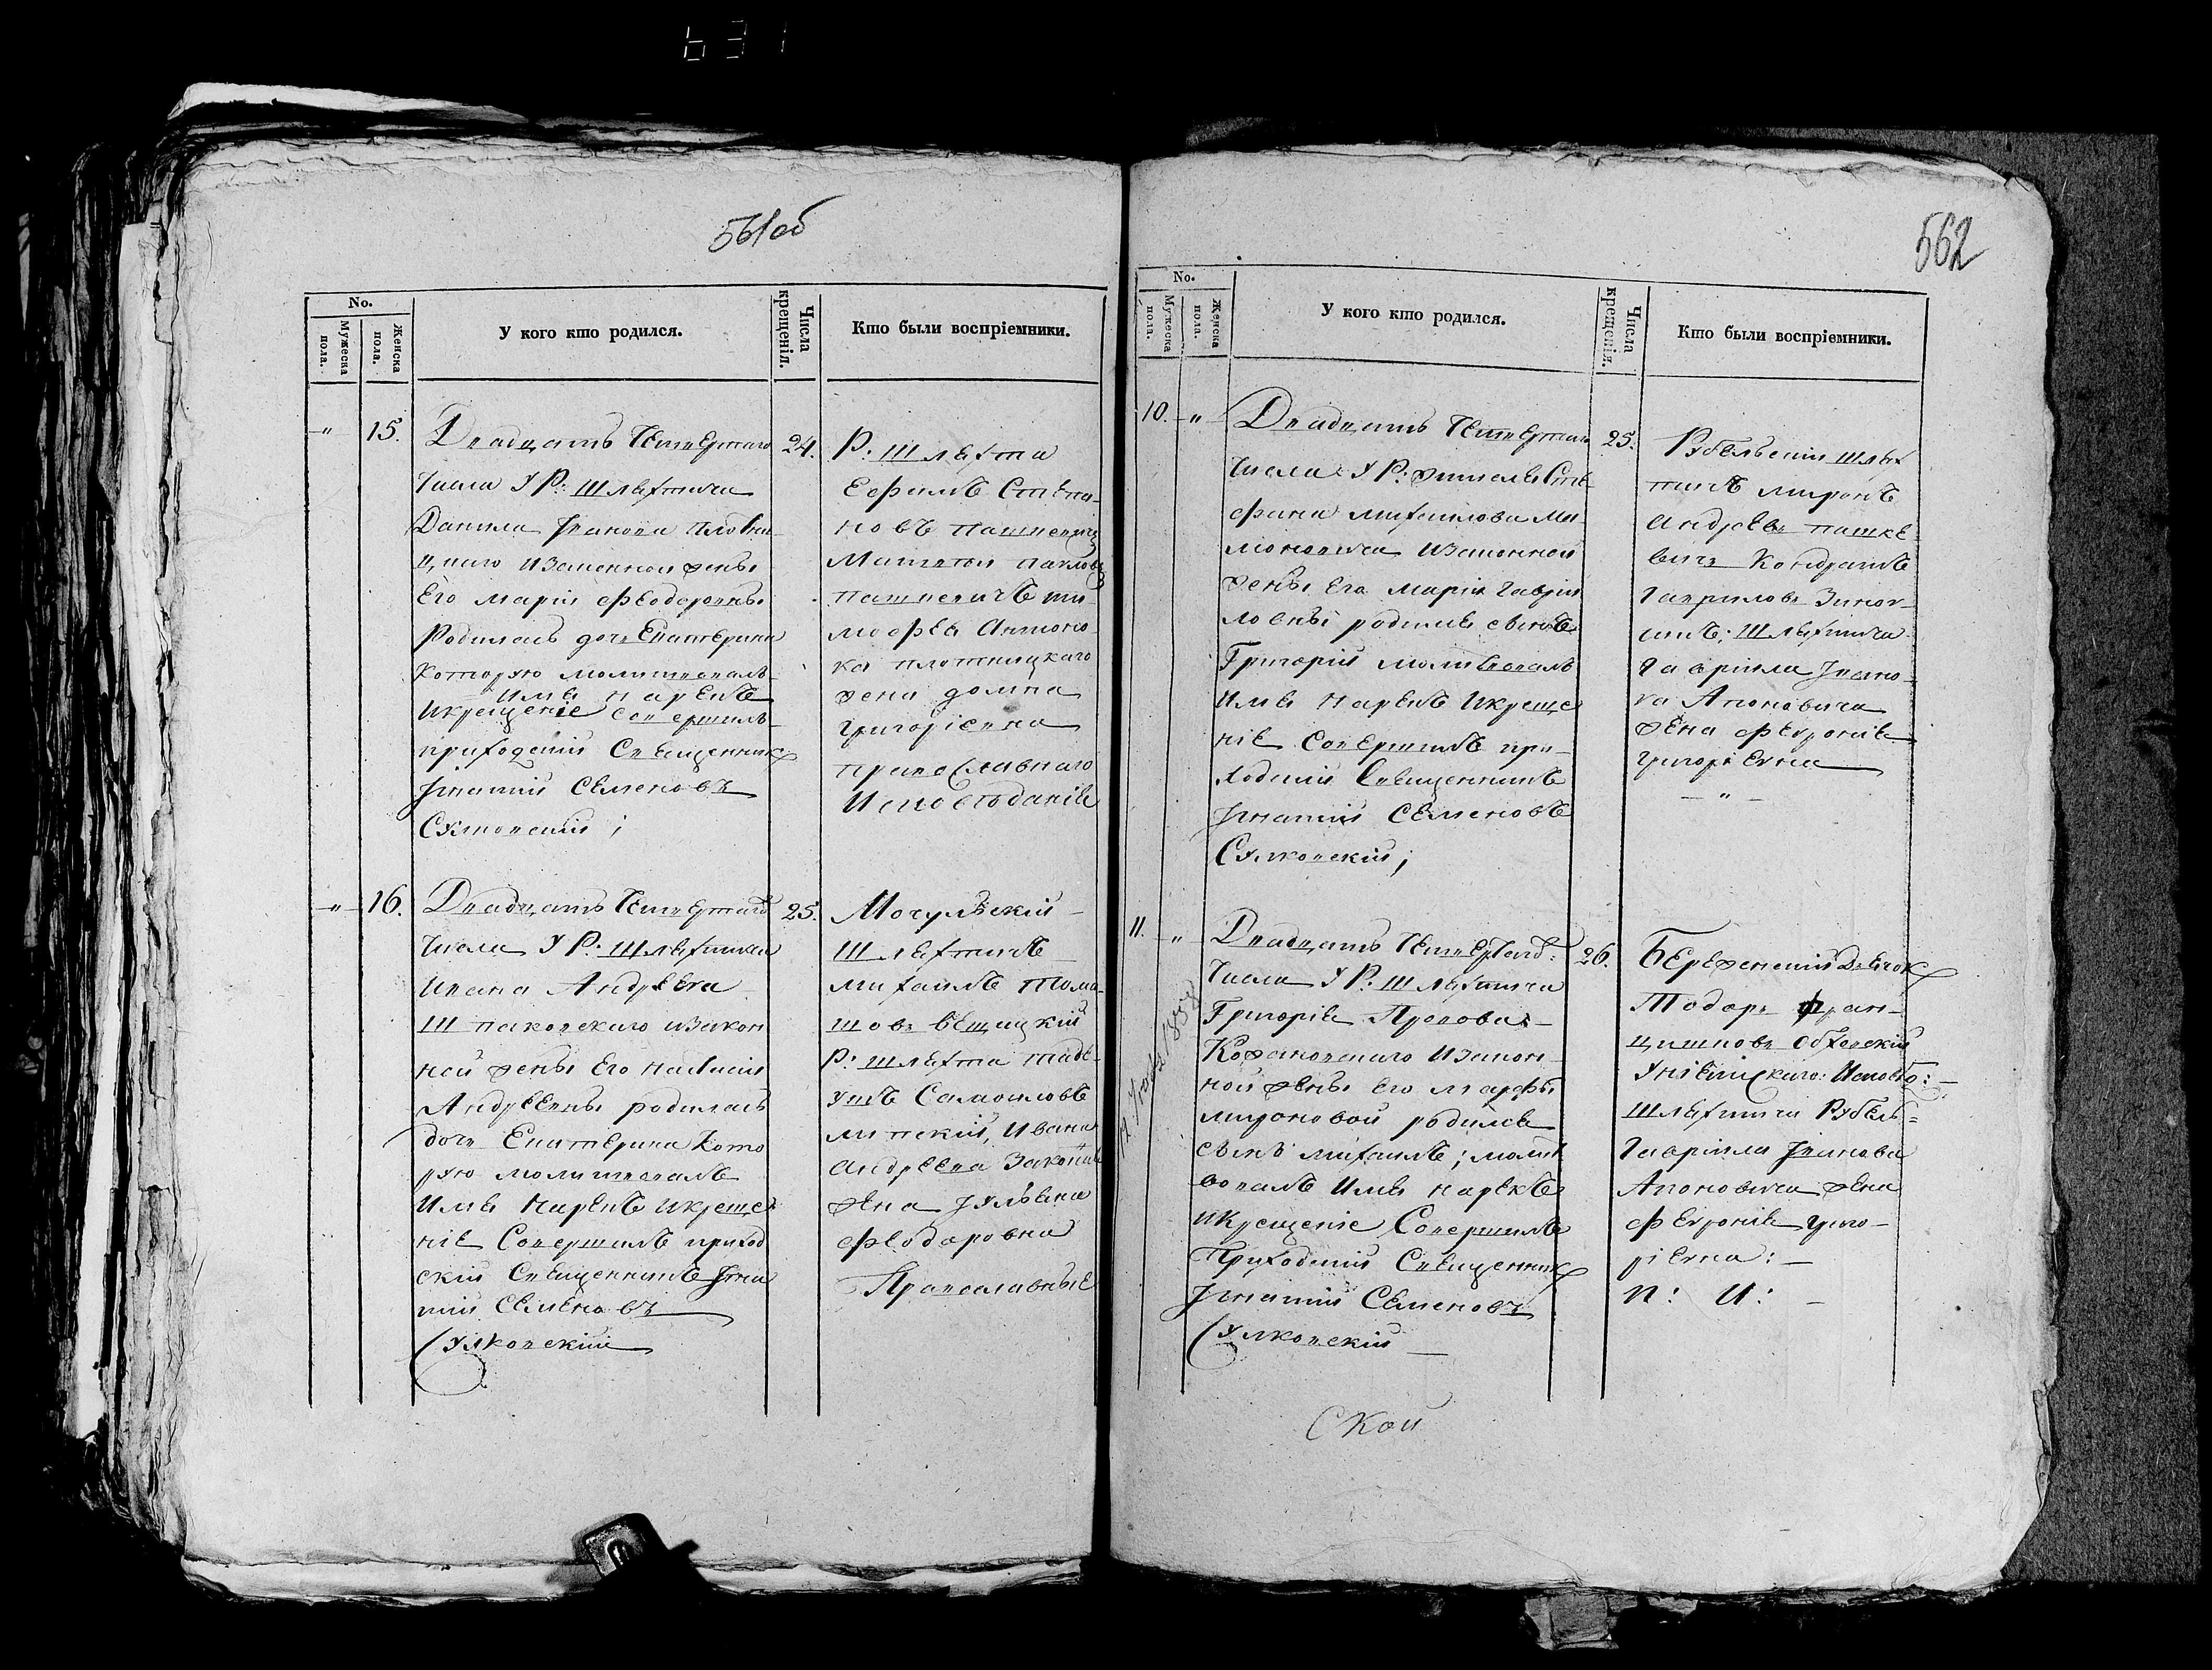 561об
No.
Мужеска пола.
Женска пола.
У кого кто родился.
Числа крещенія.
Кто были воспріемники.
" 15.
Двадцать Четвертаго
Числа У Р: Шляхтича
Данила Іванова Плотни
цкаго изаконной жены
Его Маріи Феодоровны
Родилась дочь Екатерина
Которую молитвовалъ
Имя Нарекъ
Икрещеніе совершилъ
приходскій Священникъ
Ігнатій Семеновъ
Сулковскій;
24.
Р: Шляхта
Ефимъ Степа-
новъ Пашкевичъ
Матвей Павловъ
Пашкевичъ ти
мофея Антоно
ва плотницкаго
жена домна
григоріевна
православнаго
Исповеданія
" 16.
Двадцать Четвертаго
Числа У Р: Шляхтича
Ивана Андреева
Шпаковскаго изакон
ной жены Его Настасіи
Андреевны родилась
дочь Екатерина Кото
рую молитвовалъ
Имя Нарекъ Икреще
ніе Совершилъ приход
скій Священникъ Ігна
тій Семеновъ
Сулковскій
25.
Могульскій
Шляхтичъ
Михаилъ Тома
шовъ
Р: Шляхта таде-
ушъ Самойловъ
Ивана
Андреева Законная
жена Іульяна
феодоровна
Православные
562
No.
Мужеска пола.
Женска пола.
У кого кто родился.
Числа крещенія.
Кто были воспріемники.
10. "
Двадцать Четвертаго
Числа У Р: жителя Сте
фана михайлова Ма
моновича изаконной
жены Его Маріи Гаврій
ловны родился сынъ
Григорій молитвовалъ
Имя Нарекъ Икреще
ніе Совершилъ при-
ходскій Священникъ
Ігнатій Семеновъ
Сулковскій;
25.
Рубельскій шлях
тичъ миронъ
Андреевъ пашке
вичъ Кондратъ
Гавриловъ
Шляхтича
Гавріила Івано-
ва Апоновича
жена февронія
григоріевна
"
11. "
Двадцать Четвертаго:
Числа У Р: Шляхтича
Григорія
Кожановскаго изакон
ной жены Его марфы
мироновой родился
сынъ михаилъ; молит
вовалъ Имя нарекъ
Икрещеніе Совершилъ
Приходскій Священникъ
Ігнатій Семеновъ
Сулковскій
26.
Бережнскій
Тодоръ Фран-
цишковъ
Уніятскаго: Исповѣ:
Шляхтича Рубель-
Гавріила Іванова
Апоновича жена
февронія григо-
ріевна:
П: И:
ской